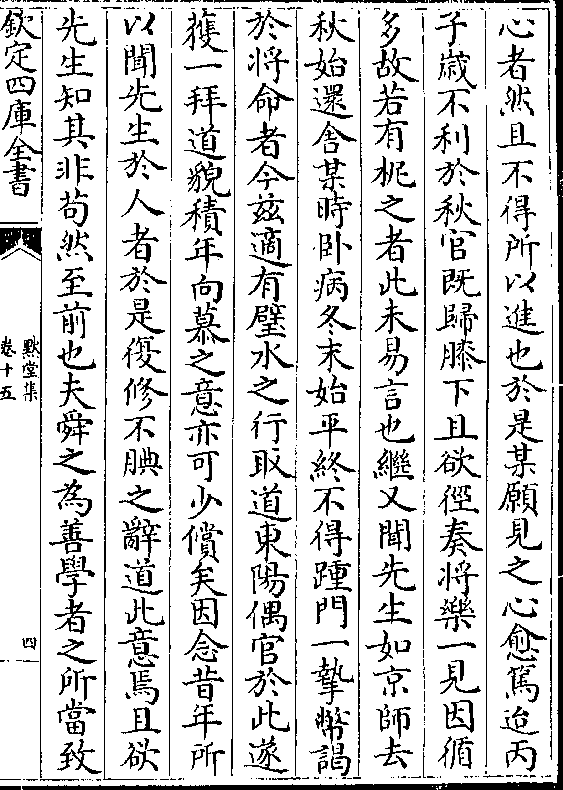 心者然且不得所以進也於是某願見之心愈篤迨丙
子歲不利於秋官既歸膝下且欲徑奏將樂一見因循
多故若有柅之者此未易言也繼又聞先生如京師去
秋始還舍某時卧病冬末始平終不得踵門一摯幣謁
於將命者今兹適有璧水之行取道東陽偶官於此遂
獲一拜道貌積年向慕之意亦可少償矣因念昔年所
以聞先生於人者於是復修不腆之辭道此意焉且欲
先生知其非苟然至前也夫舜之為善學者之所當致
欽定四庫全書
默堂集
卷十五
四